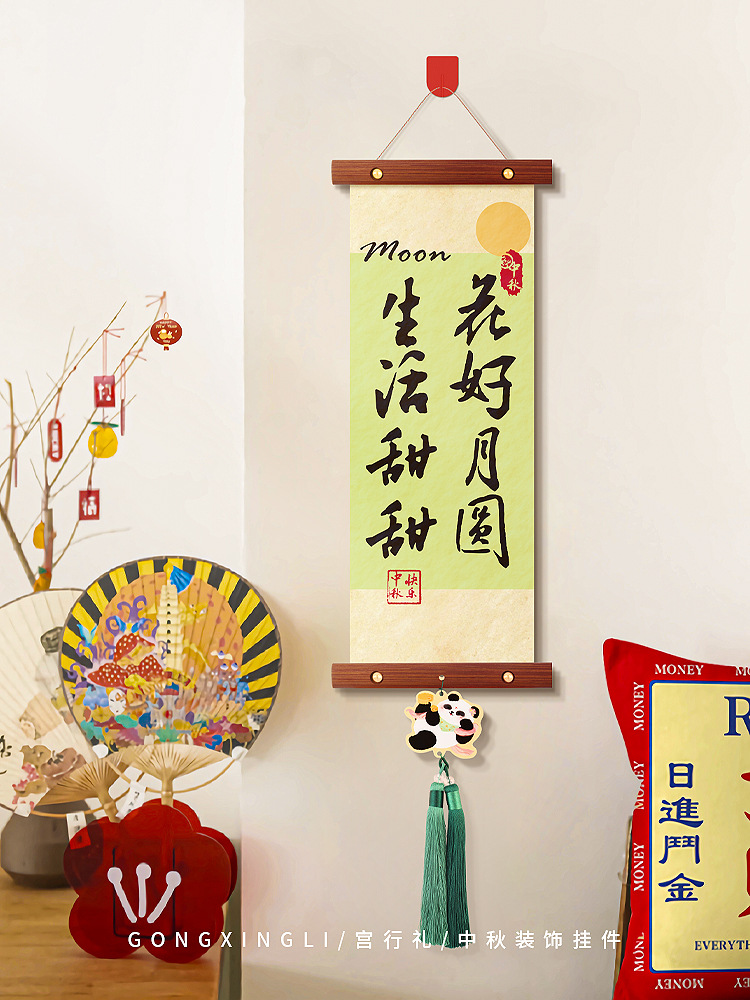 Moon
中秋
花好月圓
生活甜甜
快乐
中秋
MONEY
MONEY
MONEY
MONEY
MONEY
MONEY
MONEY
日進鬥金
GONGXINGLI/宫行礼/中秋装饰挂件